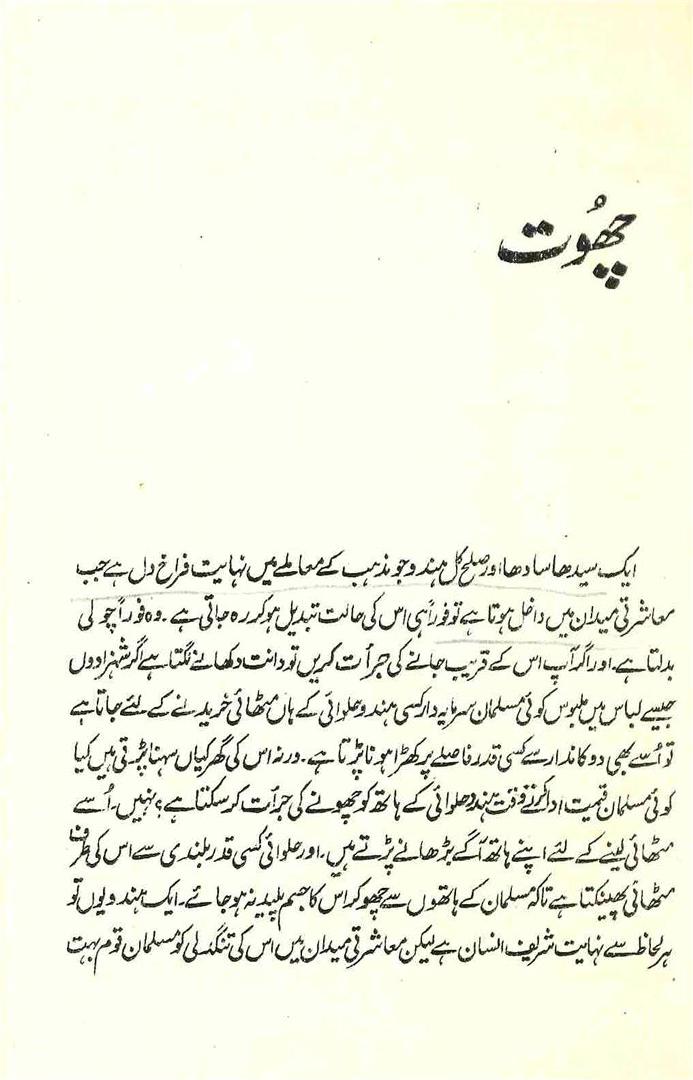 چھُوت
ایک سیدھا سادھا اور صلح کل ہندو جو مذہب کے معاملے میں نہایت فراخ دل ہے جب
معاشرتی میدان میں داخل ہوتا ہے تو فوراً ہی اس کی حالت تبدیل ہو کر رہ جاتی ہے۔ وہ فوراً چولی
بدلتا ہے۔ اور اگر آپ اس کے قریب جانے کی جرأت کریں تو دانت دکھانے لگتا ہے اگر شہزادوں
جیسے لباس میں ملبوس کوئی مسلمان سرمایہ دار کسی ہندو حلوائی کے ہاں مٹھائی خریدنے کے لئے جاتا ہے
تو اُسے بھی دوکاندار سے کسی قدر فاصلے پر کھڑا ہونا پڑتا ہے۔ ورنہ اس کی گھرکیاں سہنا پڑتی ہیں کیا
کوئی مسلمان قیمت ادا کرتے وقت ہندو حلوائی کے ہاتھ کو چھونے کی جرأت کر سکتا ہے؟ نہیں۔ اُسے
مٹھائی لینے کے لئے اپنے ہاتھ آگے بڑھانے پڑتے ہیں۔ اور حلوائی کسی قدر بلندی سے اس کی طرف
مٹھائی پھینکتا ہے تاکہ مسلمان کے ہاتھوں سے چھو کر اس کا جسم پلید نہ ہو جائے۔ ایک ہندو یوں تو
ہر لحاظ سے نہایت شریف انسان ہے لیکن معاشرتی میدان میں اس کی تنگدلی کو مسلمان قوم بہت